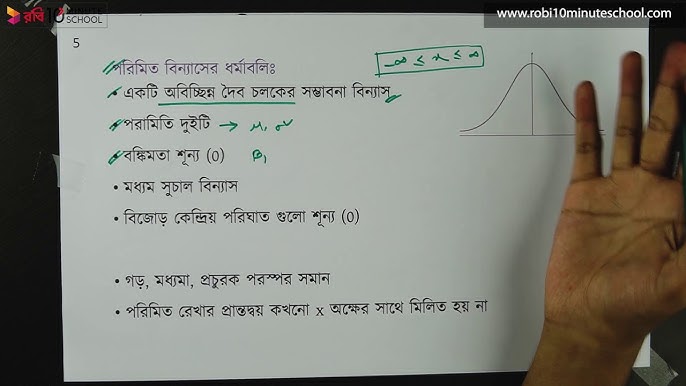 রবি 10 MINUTE SCHOOL
www.robi10minuteschool.com
5
পরিমিত বিন্যাসের ধর্মাবলিঃ
-∞ ≤ x ≤ ∞
• একটি অবিচ্ছিন্ন দৈব চলকের সম্ভাবনা বিন্যাস
• পরামিতি দুইটি → μ, σ²
• বঙ্কিমতা শূন্য (0) β₁
• মধ্যম সুচাল বিন্যাস
• বিজোড় কেন্দ্রিয় পরিঘাত গুলো শূন্য (0)
• গড়, মধ্যমা, প্রচুরক পরস্পর সমান
• পরিমিত রেখার প্রান্তদ্বয় কখনো x অক্ষের সাথে মিলিত হয় না